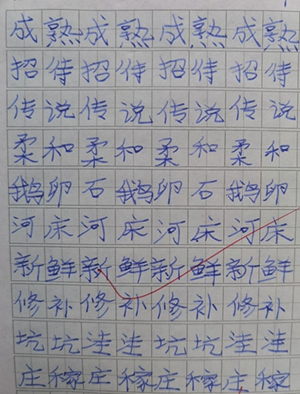 成熟成熟成熟成熟
招待招待招待招待
传说传说传说传说
柔和柔和柔和柔和
鹅卵石鹅卵石鹅卵
河床河床河床河床
新鲜新鲜新鲜新鲜
修补修补修补修补
坑坑洼洼坑坑洼洼
庄稼庄稼庄稼庄稼